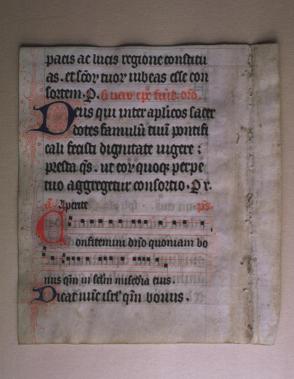 pacis ac lucis regione constitu
as. et scōꝝ tuoꝝ iubeas esse con
sortem. P.
Deus qui inter aplicos sacer
dotes famulū tuū pontifi
cali fecisti dignitate uigere ;
presta qs. ut eoꝝ quoqꝫ perpe
tuo aggregetur consortio. P r.
Aperite
Confitemini dno quoniam bo
nus qm in sclm misedia eius.
Dicat nūc isrl qm bonus.